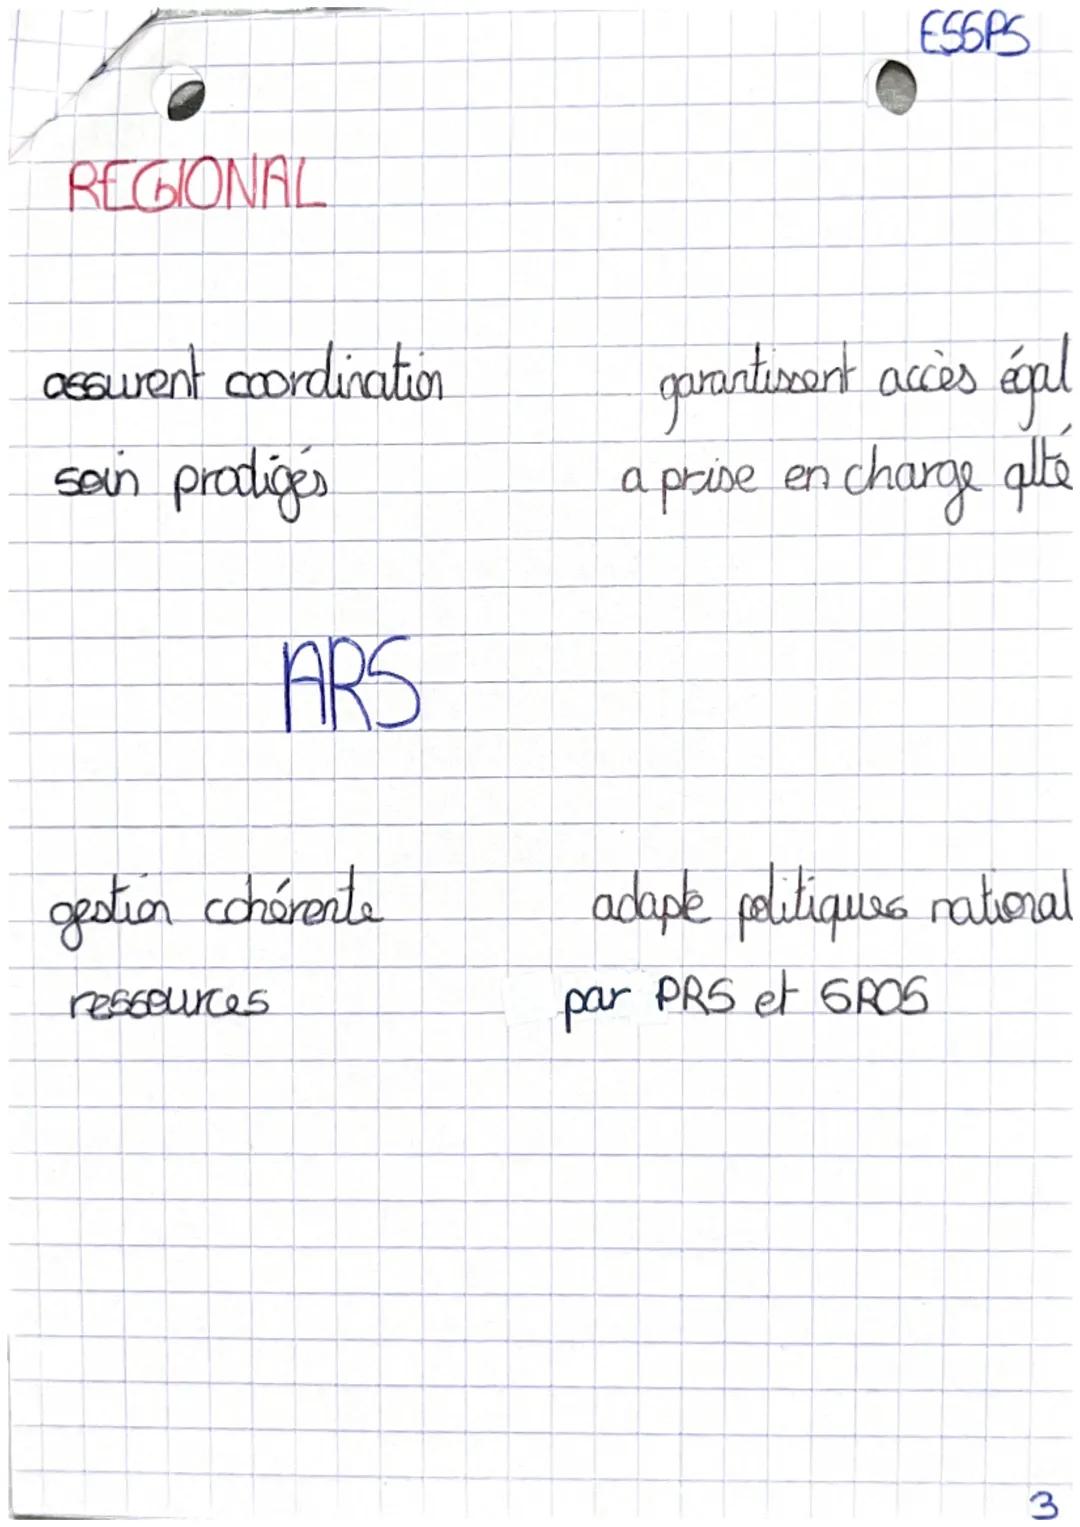 ESSPS
REGIONAL
assurent coordination
soin prodigés
garantissent accès égal
a prise en charge qlté
ARS
gestion cohérente
ressources
adapte politiques national
par PRS et SROS
3